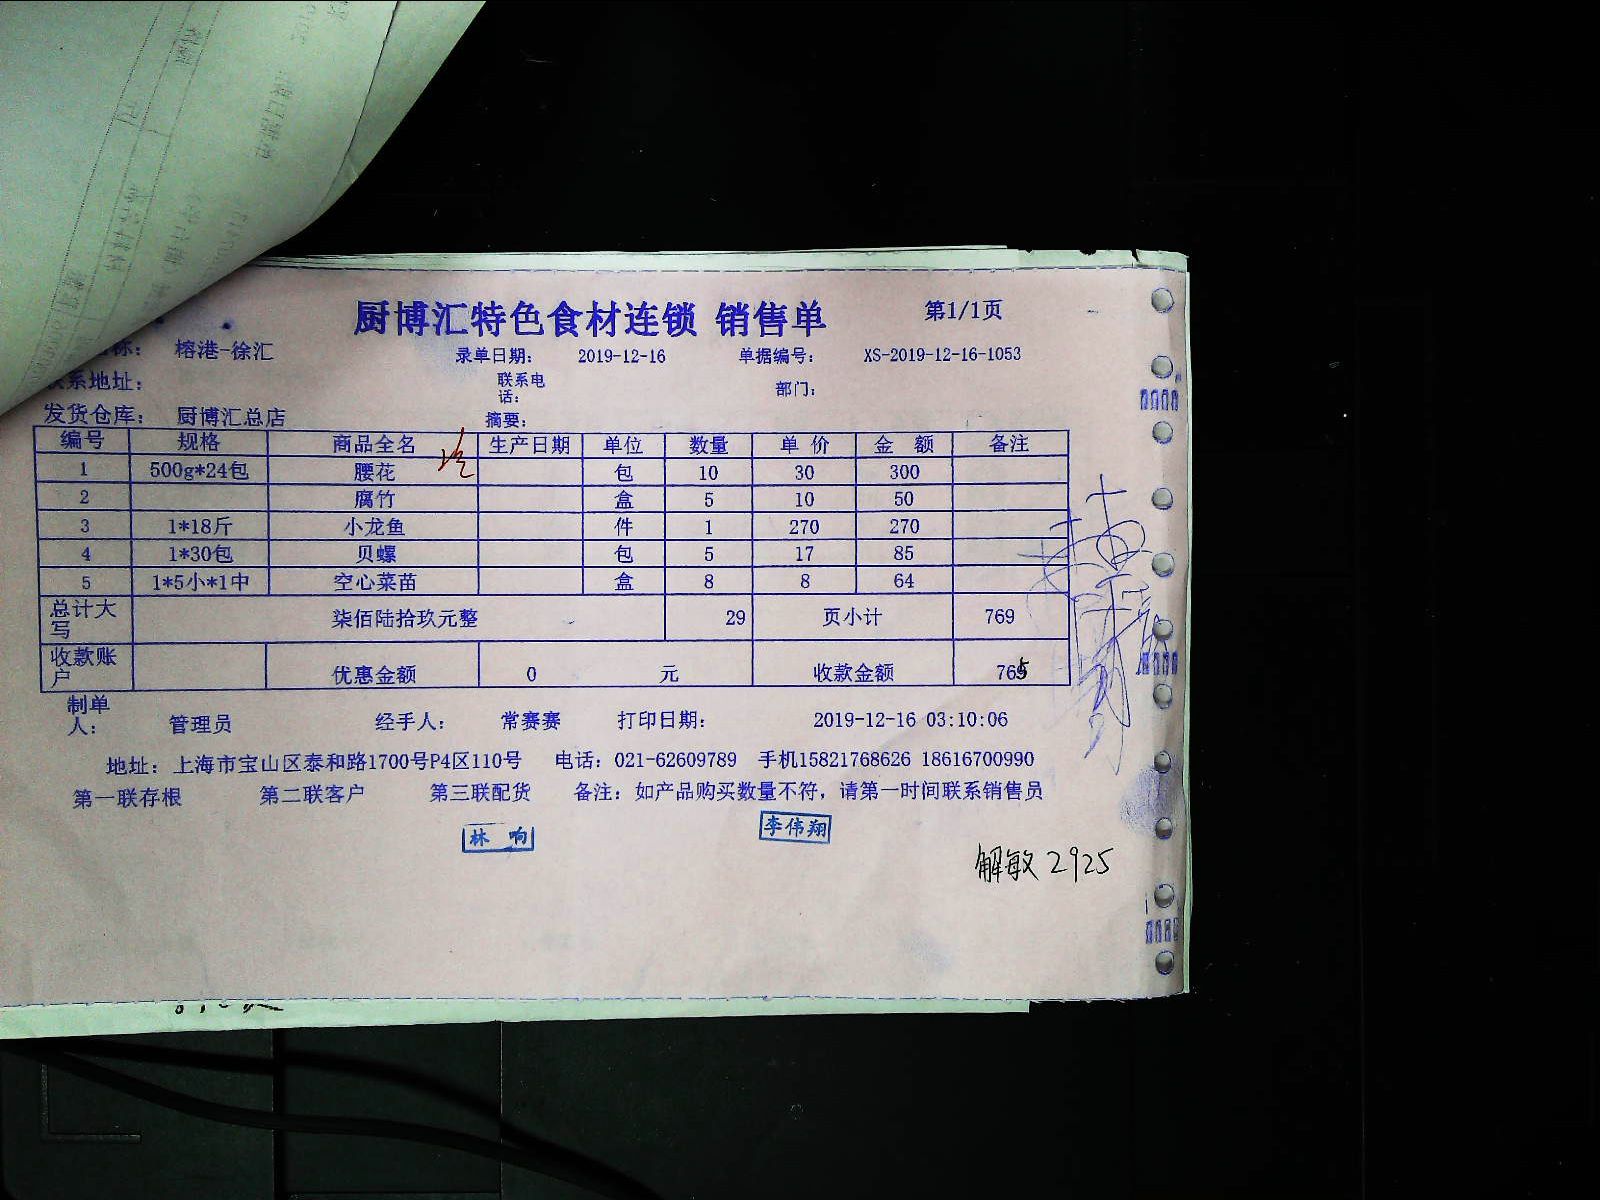 厨博汇特色食材连锁 销售单 第1/1页
称： 榕港-徐汇 录单日期： 2019-12-16 单据编号： XS-2019-12-16-1053
联系地址： 联系电话： 部门：
发货仓库： 厨博汇总店 摘要：
编号 规格 商品全名 生产日期 单位 数量 单价 金额 备注
1 500g*24包 腰花 包 10 30 300
2 腐竹 盒 5 10 50
3 1*18斤 小龙鱼 件 1 270 270
4 1*30包 贝螺 包 5 17 85
5 1*5小*1中 空心菜苗 盒 8 8 64
总计大写 柒佰陆拾玖元整 29 页小计 769
收款账户 优惠金额 0 元 收款金额 765
制单人： 管理员 经手人： 常赛赛 打印日期： 2019-12-16 03:10:06
地址：上海市宝山区泰和路1700号P4区110号 电话：021-62609789 手机15821768626 18616700990
第一联存根 第二联客户 第三联配货 备注：如产品购买数量不符，请第一时间联系销售员
林响 李伟翔
解敏 2925